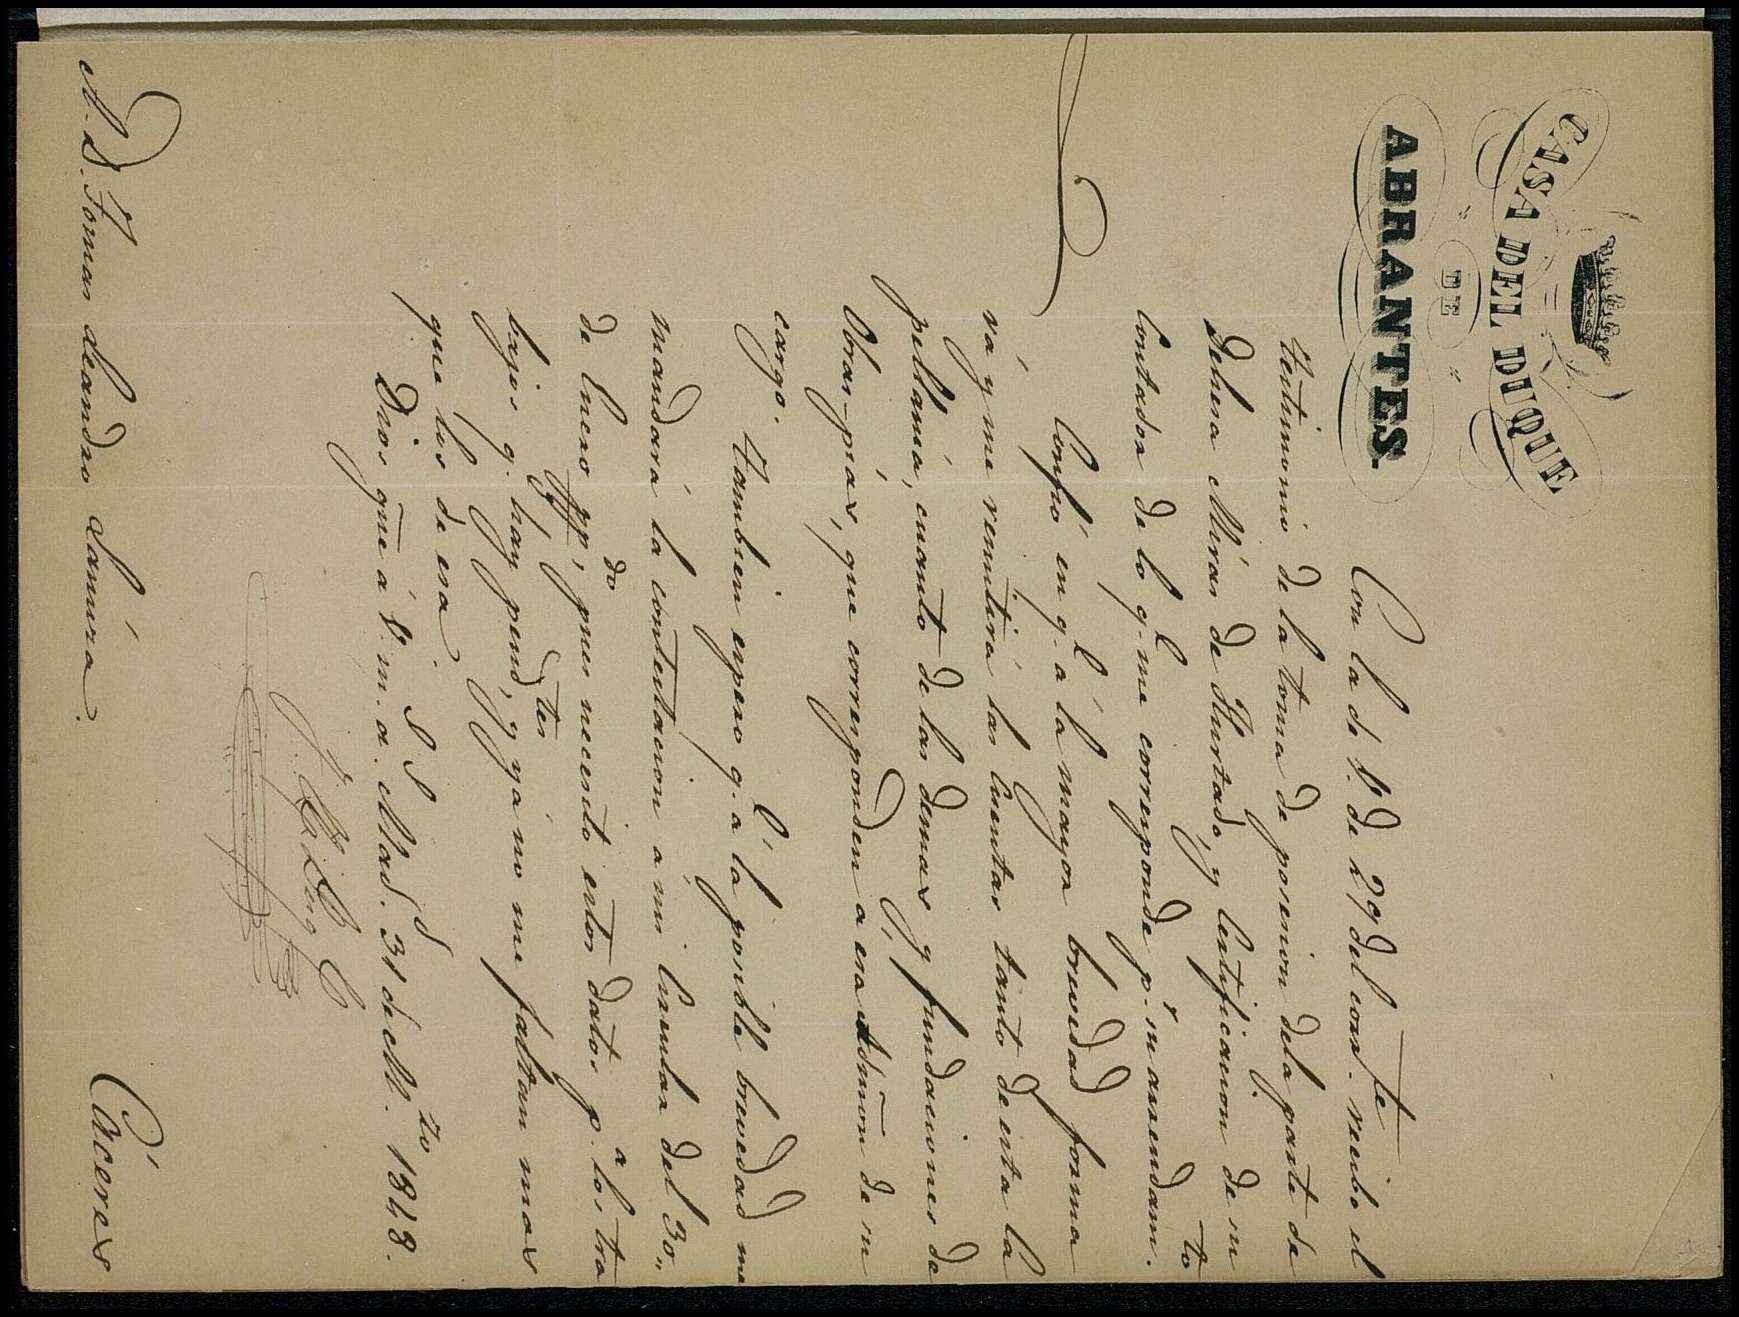 CASA DEL DUQUE
DE
ABRANTES.
Con la de V. de 29 del corr.te recibo el
testimonio de la toma de posesion de la parte de
Dehesa Miras de Hurtado, y Certificacion de su
Contador de lo q.e me corresponde p.r su arrendam.to
Confio en q.e a la mayor brevedad forma
rá y me remitirá las Cuentas tanto de esta la
pellania, cuanto de las demas y fundaciones de
Obras-pias, que corresponden a esa Admon de su
cargo.
Tambien espero q.e a la posible brevedad me
mandará la contestacion a mi Circular del 30,,
de Enero pp.do, pues necesito estos datos p.a los tra
bajos q.e hay pend.tes, y ya no me faltan mas
que los de esa.
Dios gue a V. m. a. Mad.d 31 de M.zo 1848.
S S
A. D. Tomas Leandro Lamira.
Caceres